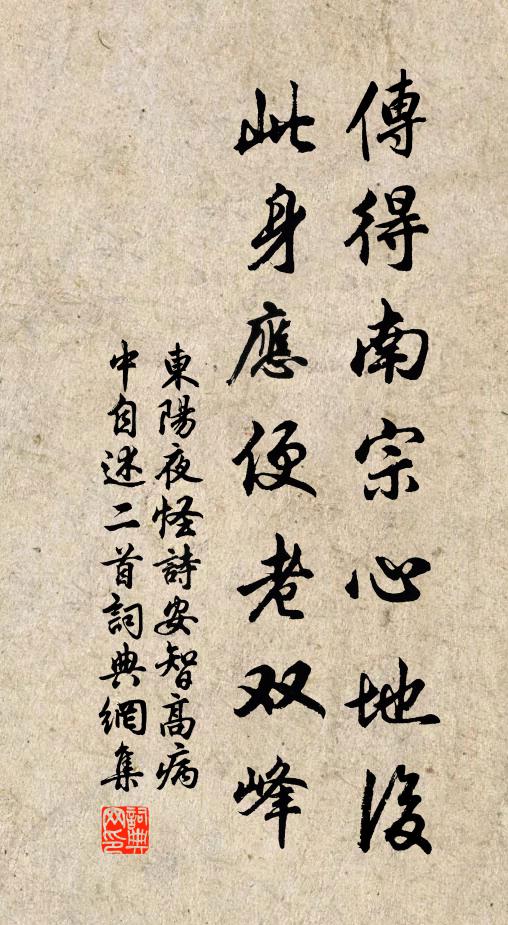 傳得南宗心地後
此身應便老双峰
東陽夜怪詩安智高病
中自述二首詞典網集
詞典
网印